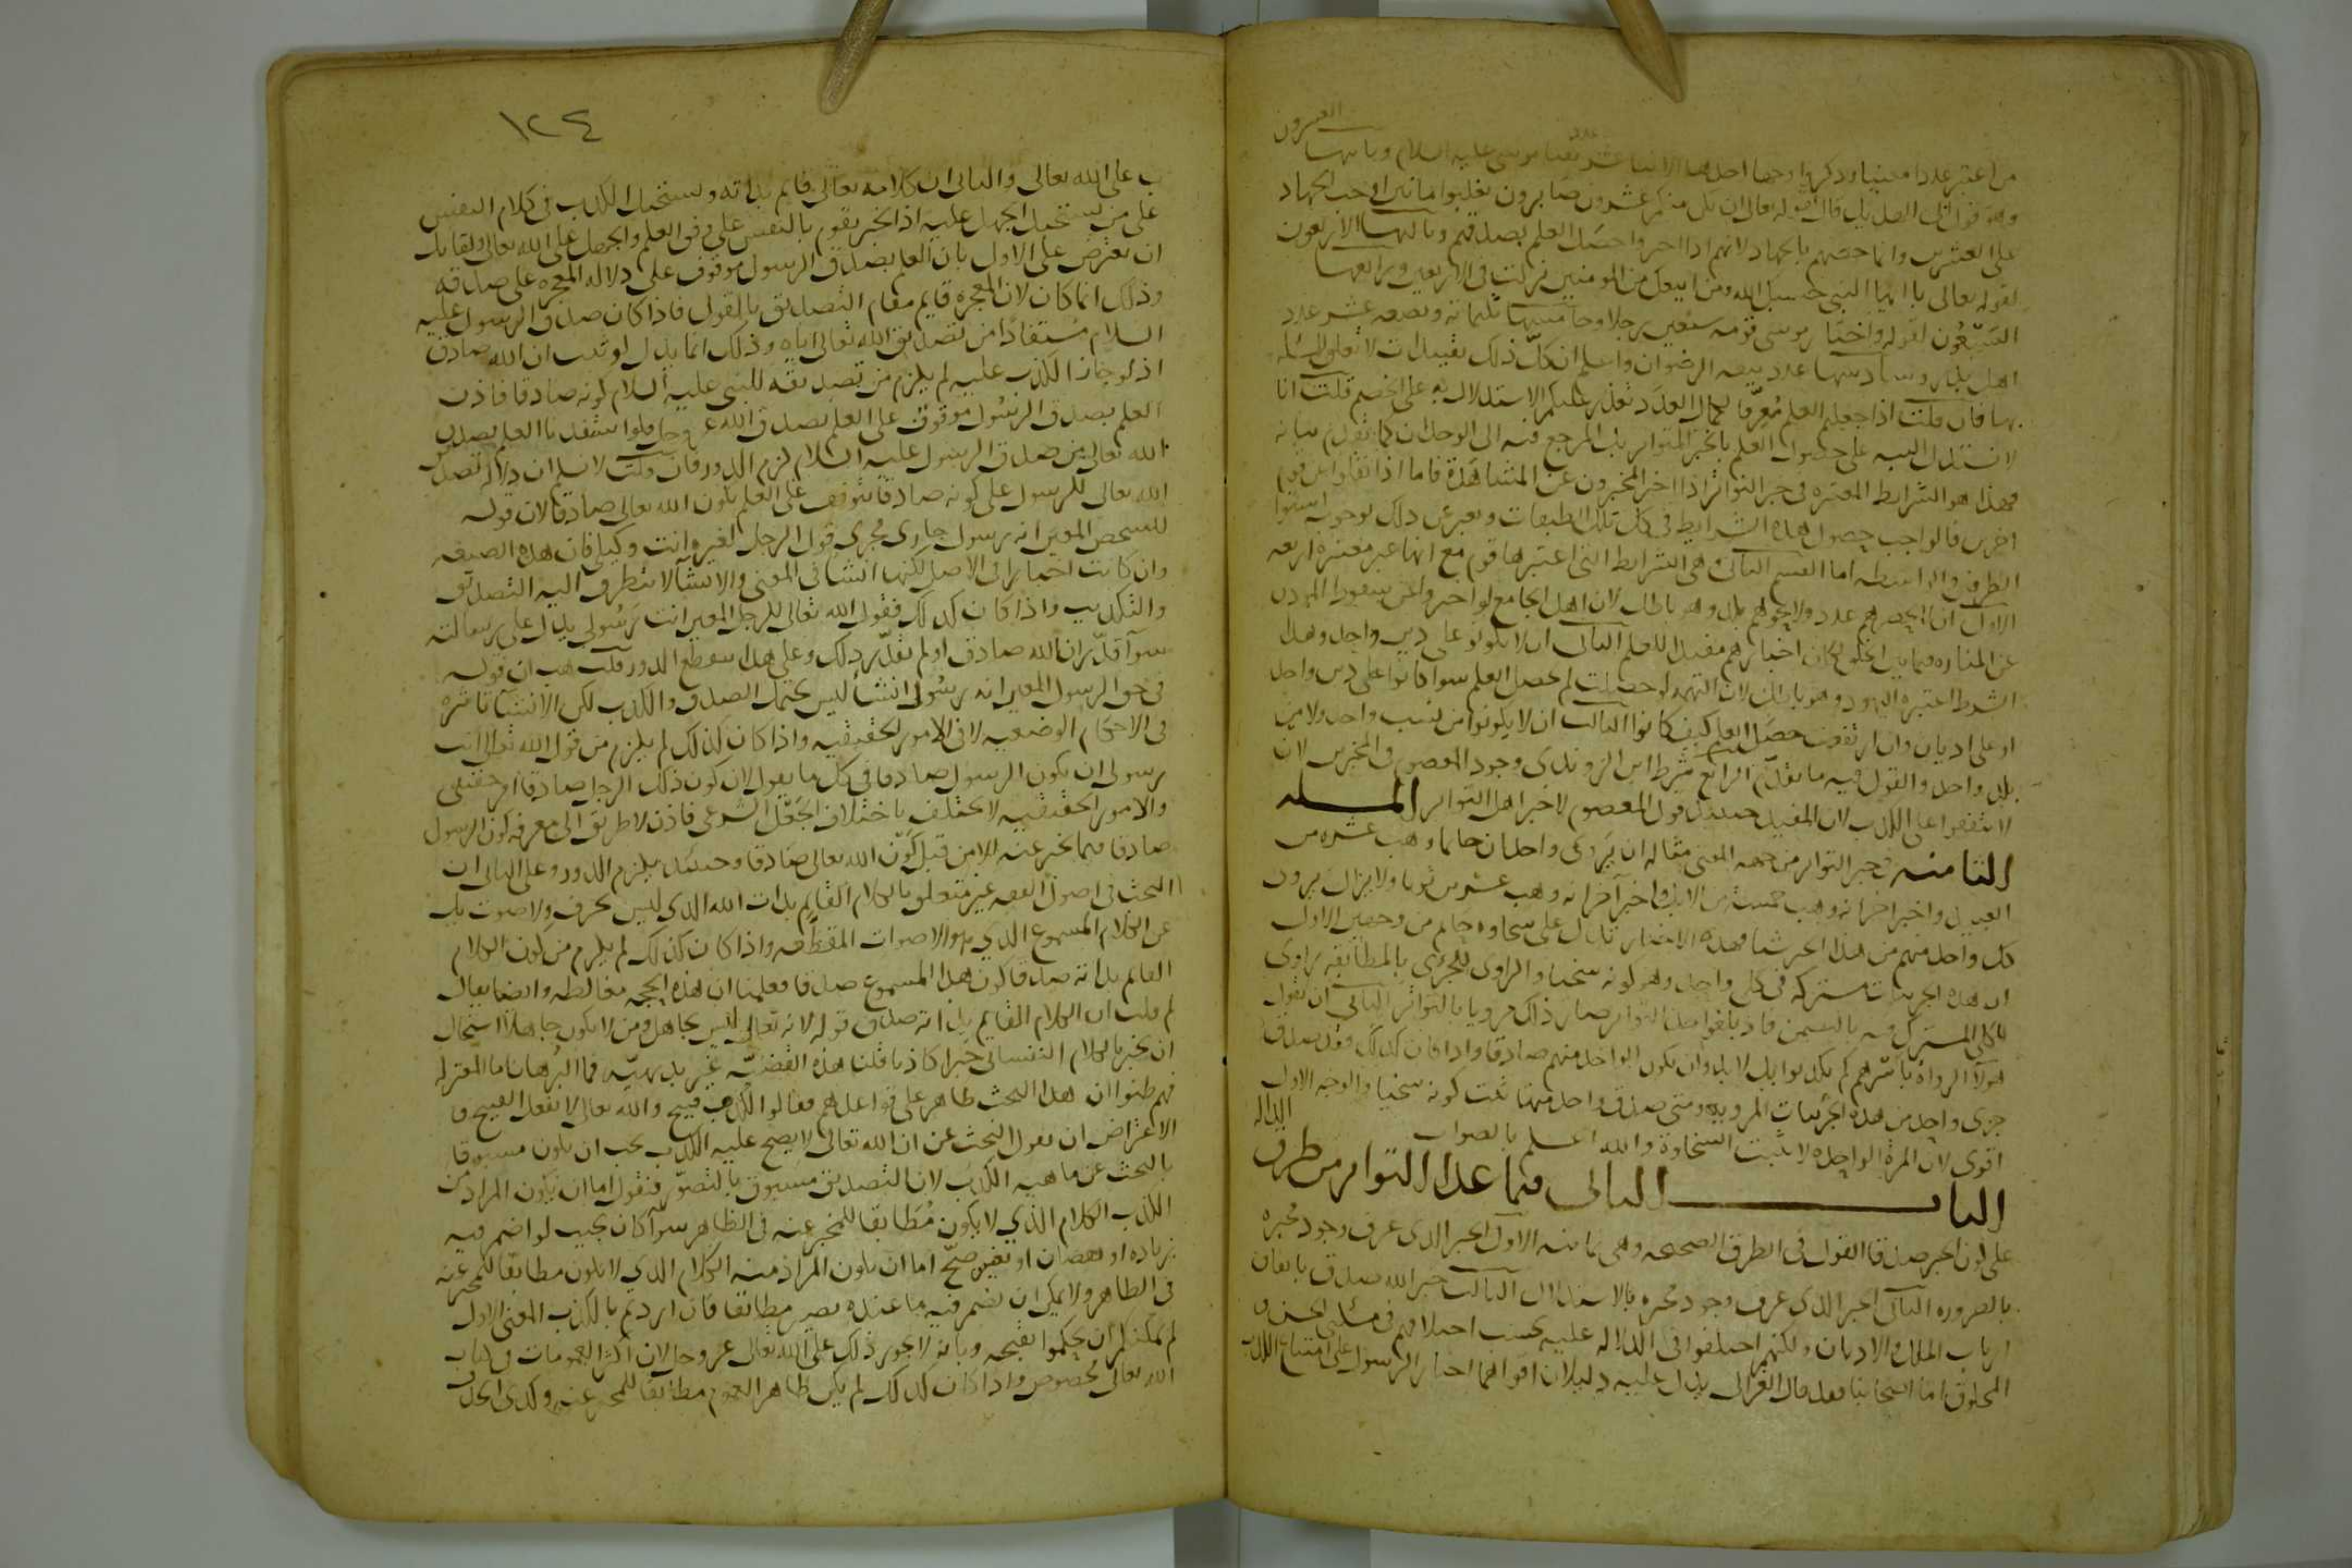 العشرون
من اعتبر عددا معينا وذكروا وجوها احدها الاثنا عشر عدد نقبا موسى عليه السلام وثانيها
وهو قول ابي الهذيل قال لقوله تعالى ان يكن منكم عشرون صابرون يغلبوا ماتين اوجب الجهاد
على العشرين وانما خصهم بالجهاد لانهم اذا اخبروا حصل العلم بصدقهم وثالثها الاربعون
لقوله تعالى يا ايها النبي حسبك الله ومن اتبعك من المومنين نزلت في الاربعين ورابعها
السبعون لقوله واختار موسى قومه سبعين رجلا وخامسها ثلثمائة وبضعه عشر عدد
اهل بدر وسادسها عدد بيعه الرضوان واعلم ان كل ذلك تقييدات لا تعلق للمسئلة
بها فان قلت اذا جعلتم العلم معرفا لكمال العدد تعذر عليكم الاستدلال به على الخصم قلت انا
لا نستدل البته على حصول العلم بالخبر المتواتر بل المرجع فيه الى الوجدان كما تقدم بيانه
فهذا هو الشرايط المعتبره في خبر التواتر اذا اخبر المخبرون عن المشاهدة فاما اذا نقلوا عن قوم
اخرين فالواجب حصول هذه الشرايط في كل تلك الطبقات ويعبر عن ذلك بوجوب استوا
الطرفين والواسطه اما القسم الثاني وهي الشرايط التي اعتبرها قوم مع انها غير معتبرة اربعه
الاول ان لا يحصرهم عدد ولا يحويهم بلد وهو باطل لان اهل الجامع لو اخبروا عن سقوط الموذن
عن المناره فيما بين الخلق لكان اخبارهم مفيدا للعلم الثاني ان لا يكونوا على دين واحد وهذا
الشرط اعتبره اليهود وهو باطل لان التهمه لو حصلت لم يحصل العلم سوا كانوا على دين واحد
او على اديان وان ارتفعت حصل العلم كيف كانوا الثالث ان لا يكونوا من نسب واحد ولا من
بلد واحد والقول فيه ما تقدم الرابع شرط ابن الروندي وجود المعصوم في المخبرين لان
لا يتفقوا على الكذب لان المفيد حينئذ قول المعصوم لا خبر اهل التواتر المسله
الثامنه في خبر التواتر من جهه المعنى مثاله ان يروى واحد ان حاتما وهب عشره من
العبيد واخبر اخر انه وهب خمسة من الابل واخبر آخر انه وهب عشرين ثوبا ولا يزال يروى
كل واحد منهم من هذا الجنس شيا فهذه الاخبار تدل على سخاوه حاتم من وجهين الاول
ان هذه الجزييات مشتركه في كلي واحد وهو كونه سخيا والراوى للجزئي بالمطابقه راوى
للكلي المشترك فيه بالتضمن فاذا بلغوا حد التواتر صار ذلك مرويا بالتواتر الثاني ان نقول
هولا الرواة باسرهم لم يكذبوا بل لا بد وان يكون الواحد منهم صادقا واذا كان كذلك فقد صدق
جزي واحد من هذه الجزييات المرويه ومتى صدق واحد منها ثبت كونه سخيا والوجه الاول
اقوى لان المرة الواحده لا تثبت السخاوة والله اعلم بالصواب
الباب الثاني فيما عدا التواتر من طرق الدالة
على كون الخبر صدقا القول في الطرق الصحيحه وهي ثمانيه الاول الخبر الذي عرف وجود مخبره
بالضروره الثاني الخبر الذي عرف وجود مخبره بالاستدلال الثالث خبر الله صدق باتفاق
ارباب الملل والاديان ولكنهم اختلفوا في الدلاله عليه بحسب اختلافهم في مسئلتي الحسن و
المخلوق اما اصحابنا فقد قال الغزالى يدل عليه دليلان اقواهما اخبار الرسول على امتناع الكذب
١٢٤
ب على الله تعالى والثاني ان كلامه تعالى قايم بذاته ويستحيل الكذب في كلام النفس
على من يستحيل الجهل عليه اذ الخبر يقوم بالنفس على وفق العلم والجهل على الله تعالى ولقايل
ان يعترض على الاول بان العلم بصدق الرسول موقوف على دلاله المعجزه على صدقه
وذلك انما كان لان المعجزه قايم مقام التصديق بالقول فاذا كان صدق الرسول عليه
السلام مستفادا من تصديق الله تعالى اياه وذلك انما يدل لو ثبت ان الله صادق
اذ لو جاز الكذب عليه لم يلزم من تصديقه للنبي عليه السلام كونه صادقا فاذن
العلم بصدق الرسول موقوف على العلم بصدق الله عز وجل فلو استفدنا العلم بصدق
الله تعالى من صدق الرسول عليه السلام لزم الدور فان قلت لا نسلم ان دلاله تصديق
الله تعالى للرسول على كونه صادقا يتوقف على العلم بكون الله تعالى صادقا لان قوله
للشخص المعين انه رسول جارى مجرى قول الرجل لغيره انت وكيلي فان هذه الصيغه
وان كانت اخبارا في الاصل لكنها انشا في المعنى والانشآ لا يتطرق اليه التصديق
والتكذيب واذا كان كذلك فقول الله تعالى للرجل المعين انت رسولي يدل على رسالته
سوآ قدّر ان الله صادق او لم نقدّر ذلك وعلى هذا ينقطع الدور قلت هب ان قوله
في حق الرسول المعين انه رسولي انشآ ليس يحتمل الصدق والكذب لكن الانشآ تاثره
في الاحكام الوضعيه لا في الامور الحقيقيه واذا كان كذلك لم يلزم من قول الله تعالى انت
رسولي ان يكون الرسول صادقا في كل ما يقول لان كون ذلك الرجل صادقا امر حقيقي
والامور الحقيقيه لا تختلف باختلاف الجعل الشرعي فاذن لا طريق الى معرفه كون الرسول
صادقا فيما يخبر عنه الا من قبل كون الله تعالى صادقا وحينئذ يلزم الدور وعلى الثاني ان
البحث في اصول الفقه غير متعلق بالكلام القايم بذات الله الذي ليس بحرف ولا صوت بل
عن الكلام المسموع الذي هو الاصوات المقطعه واذا كان كذلك لم يلزم من كون الكلام
القايم بذاته صدقا كون هذا المسموع صدقا فعلمنا ان هذه الحجه مغالطه وايضا يقال
لم قلت ان الكلام القايم بذاته صدق قوله لانه تعالى ليس بجاهل ومن لا يكون جاهلا استحال
ان يخبر بالكلام النفساني خبرا كاذبا قلنا هذه القضية غير بديهيه فما البرهان اما المعتزله
فهم ظنوا ان هذا البحث ظاهر على قواعدهم فقالوا الكذب قبيح والله تعالى لا يفعل القبيح و
الاعتراض ان نقول البحث عن ان الله تعالى لا يصح عليه الكذب يجب ان يكون مسبوقا
بالبحث عن ماهيه الكذب لان التصديق مسبوق بالتصوّر فنقول اما ان يكون المراد من
الكذب الكلام الذي لا يكون مطابقا للمخبر عنه في الظاهر سوآ كان بحيث لو اضمر فيه
زياده او نقصان او تغير صحّ اما ان يكون المراد منه الكلام الذي لا يكون مطابقا للمخبر عنه
في الظاهر ولا يمكن ان يضمر فيه ما عنده يصير مطابقا فان اردتم بالكذب المعنى الاول
لم يمكنكم ان تحكموا بقبحه وبانه لا يجوز ذلك على الله تعالى عز وجل لان اكثر العمومات في كتاب
الله تعالى مخصوص واذا كان كذلك لم يكن ظاهر العموم مطابقا للمخبر عنه وكذي الحذف